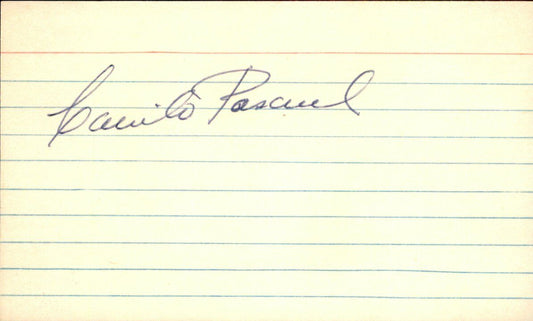 Camilo Pascual